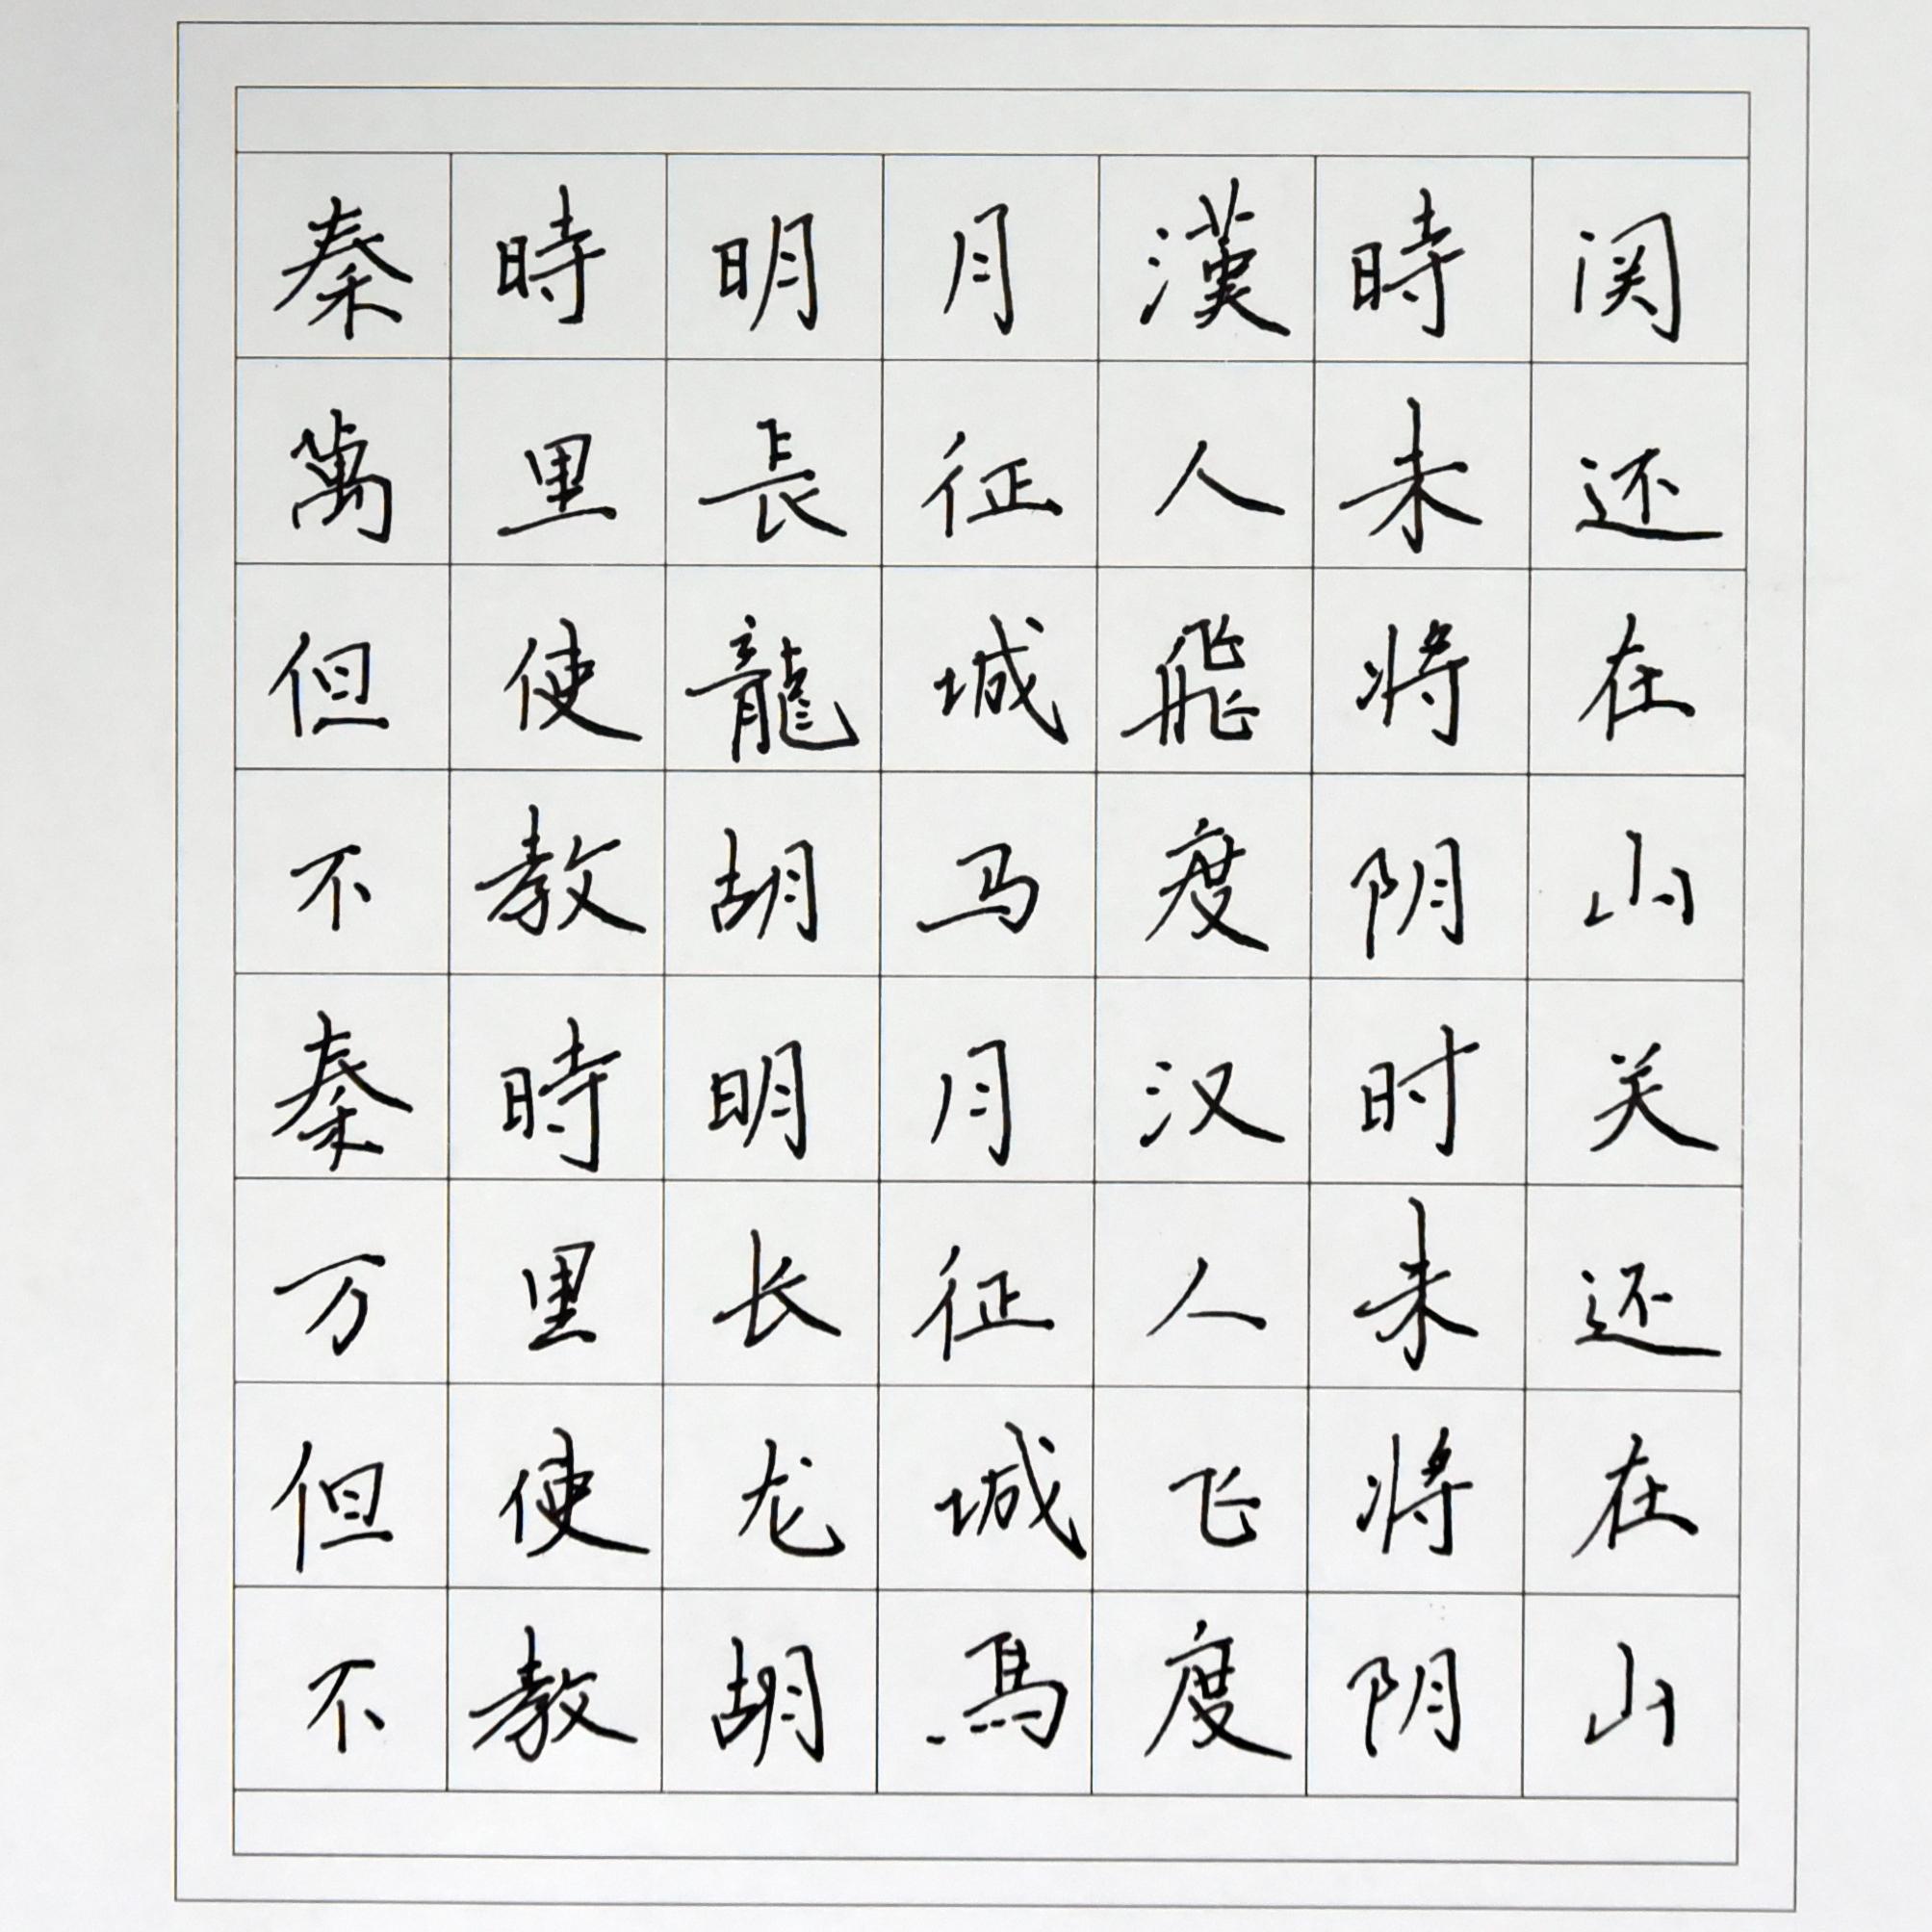 秦時明月漢時関
萬里長征人未还
但使龍城飛将在
不教胡马度阴山
秦時明月汉时关
万里长征人未还
但使龙城飞将在
不教胡馬度阴山